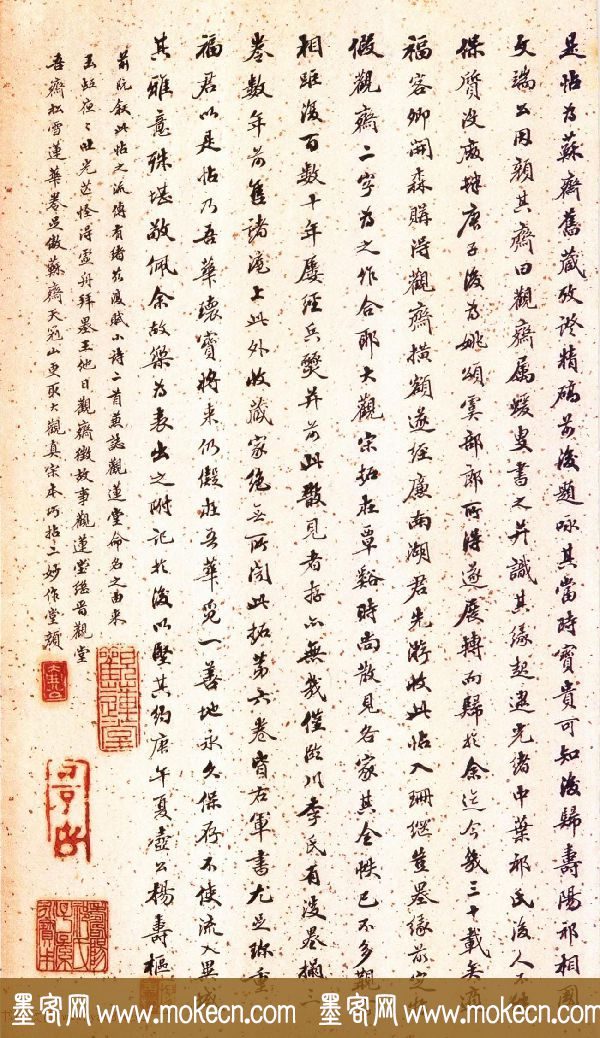 是帖為蘇齋舊藏攷證精確前後題咏其當時寶貴可知後歸壽陽祁相國
文端公因顏其齋曰觀齋屬蝯叟書之并識其緣起迨光緒中葉祁氏後人不
保質沒廠肆庚子後為姚頌虞部郎所得遂展轉而歸於余迄今幾三十載矣適
福客卿開森購得觀齋橫額遂經廉南湖君先游收此帖入珊繼豈墨緣前定
假觀齋二字為之作合耶大觀宋拓在覃谿時尚散見各家其全帙已不多覯
相距後百數十年屢經兵燹并前此散見者存亡無幾僅臨川李氏有淩墨搨二
卷數年前售諸滬上此外收藏家絕無所聞此拓第六卷皆右軍書尤足弥重
福君以是帖乃吾華瓌寶將來仍假在吾華覓一善地永久保存不使流入異域
其雅意殊堪敬佩余故樂為表出之附記於後以堅其約庚午夏壺公楊壽樞
前紀敘此帖之流傳有緒茲復賦小詩二首兼誌觀蓮堂命名之由來
玉虹夜夜吐光芒怪得靈舟拜墨王他日觀齋徵故事觀蓮堂繼晉觀堂
吾齋松雪蓮華卷足傲蘇齋天冠山更取大觀真宋本巧拈二妙作堂顏
觀蓮堂
墨客网 www.mokecn.com 墨客网 www.mokecn.com